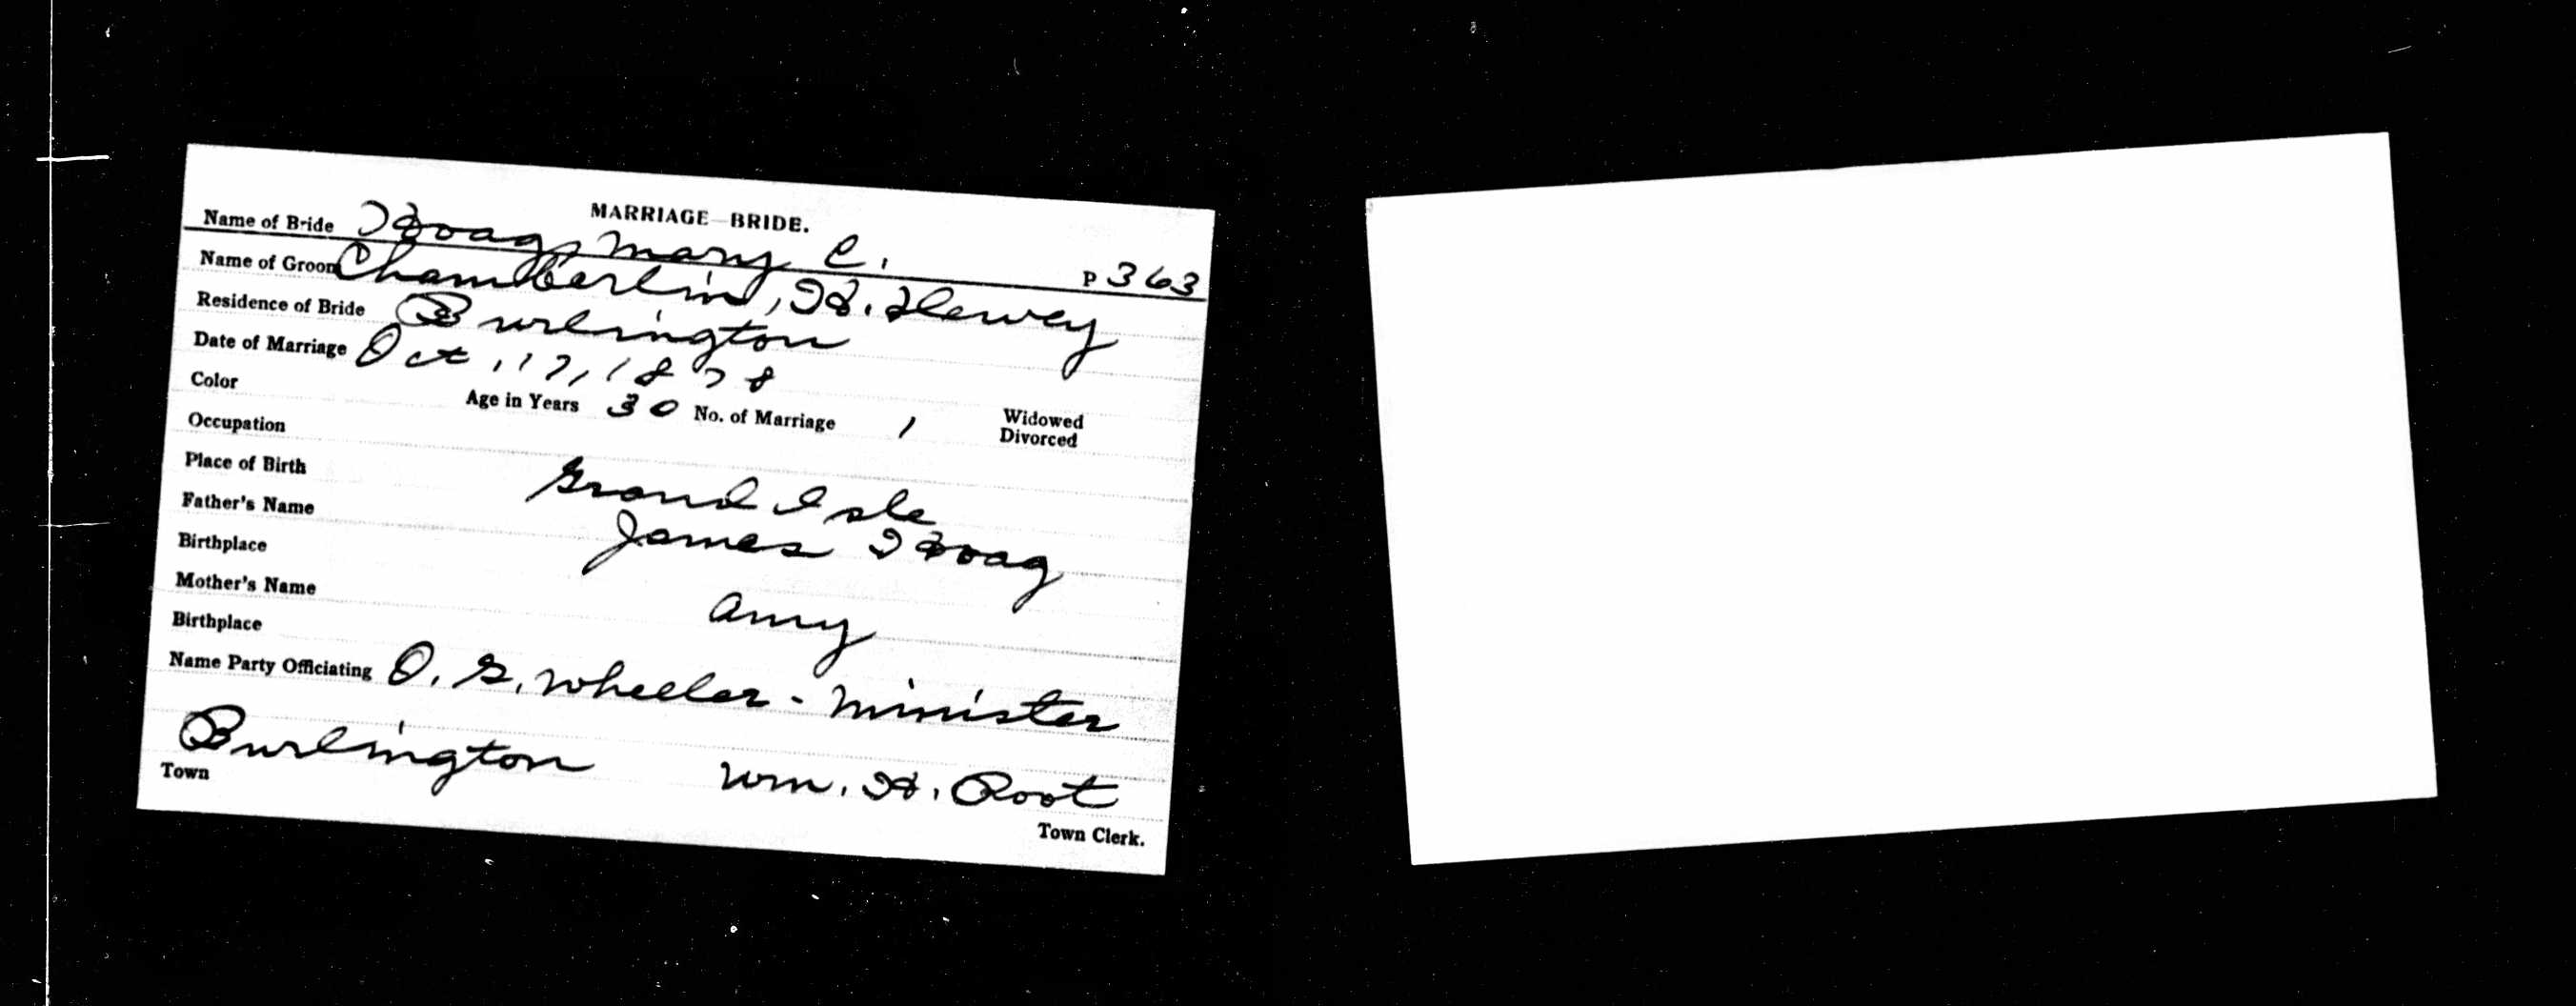 MARRIAGE—BRIDE.
Name of Bride Hoag, Mary C. P 363
Name of Groom Chamberlin, H. Dewey
Residence of Bride Burlington
Date of Marriage Oct, 17, 1878
Color Age in Years 30 No. of Marriage 1 Widowed Divorced
Occupation
Place of Birth Grand Isle
Father's Name James Hoag
Birthplace
Mother's Name Amy
Birthplace
Name Party Officiating O. G. Wheeler - Minister
Burlington Wm. H. Root
Town Town Clerk.